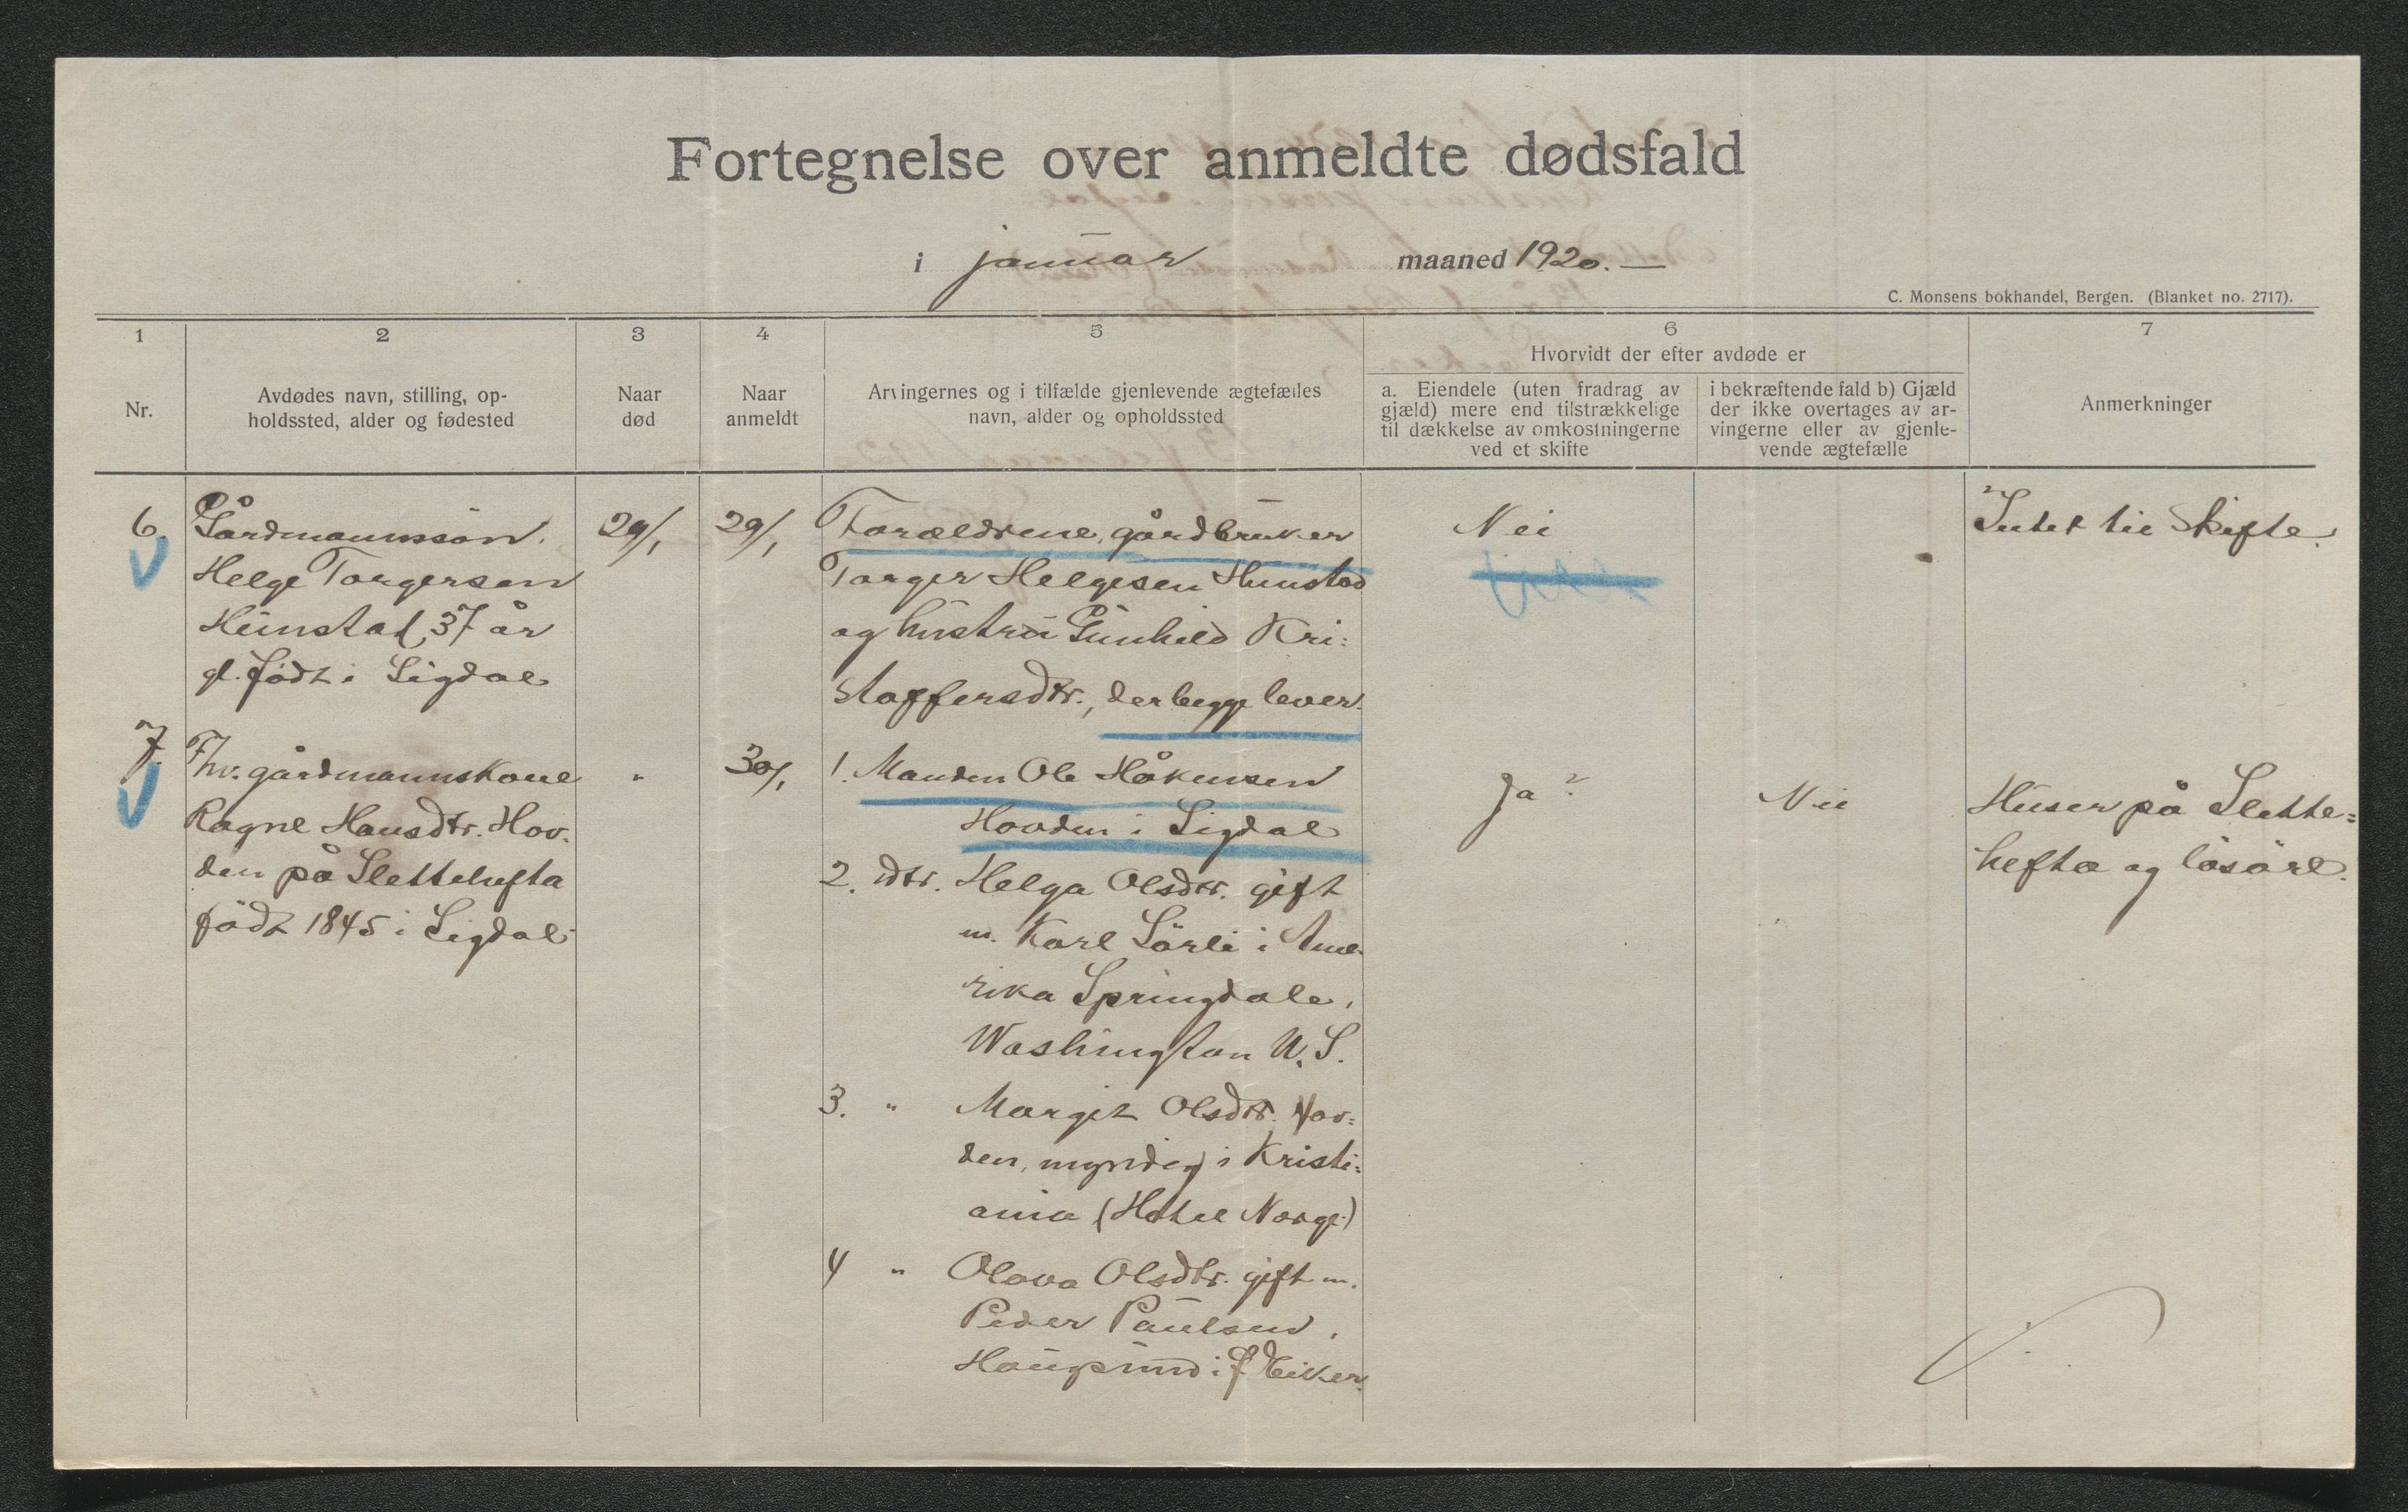 Fortegnelse over anmeldte dødsfald
i januar maaned 1920. —
C. Monsens bokhandel, Bergen. (Blanket no. 2717).
1
Nr.
2
Avdødes navn, stilling, op-
holdssted, alder og fødested
3
Naar
død
4
Naar
anmeldt
5
Arvingernes og i tilfælde gjenlevende ægtefælles
navn, alder og opholdssted
6
Hvorvidt der efter avdøde er
a. Eiendele (uten fradrag av
gjæld) mere end tilstrækkelige
til dækkelse av omkostningerne
ved et skifte
i bekræftende fald b) Gjæld
der ikke overtages av ar-
vingerne eller av gjenle-
vende ægtefælle
7
Anmerkninger
6.
Gårdmannssön.
Helge Torgersen
Hunstad, 37 år
gl. född i Sigdal
29/1
29/1
Forældrene, gårdbruker
Torger Helgesen Hunstad
og hustru Gunhild Kri=
stoffersdtr., der begge lever.
Nei
Intet til skifte.
7.
Fhv. gårdmannskone
Ragne Hansdtr. Hov-
den på Slettehefta
född 1845 i Sigdal
"
30/1
1. Manden Ole Håkensen
Hovden i Sigdal
2. dtr. Helga Olsdtr. gift
m. Karl Sörli i Ame-
rika Springdale,
Washington U. S.
3. " Margit Olsdtr. Hov=
den, myndig i Kristi=
ania (Hotel Norge)
4 " Olava Olsdtr. gift m.
Peder Paulsen,
Hougsund i Eiker.
Ja ?
Nei
Huser på Slette=
hefta og lösöre.